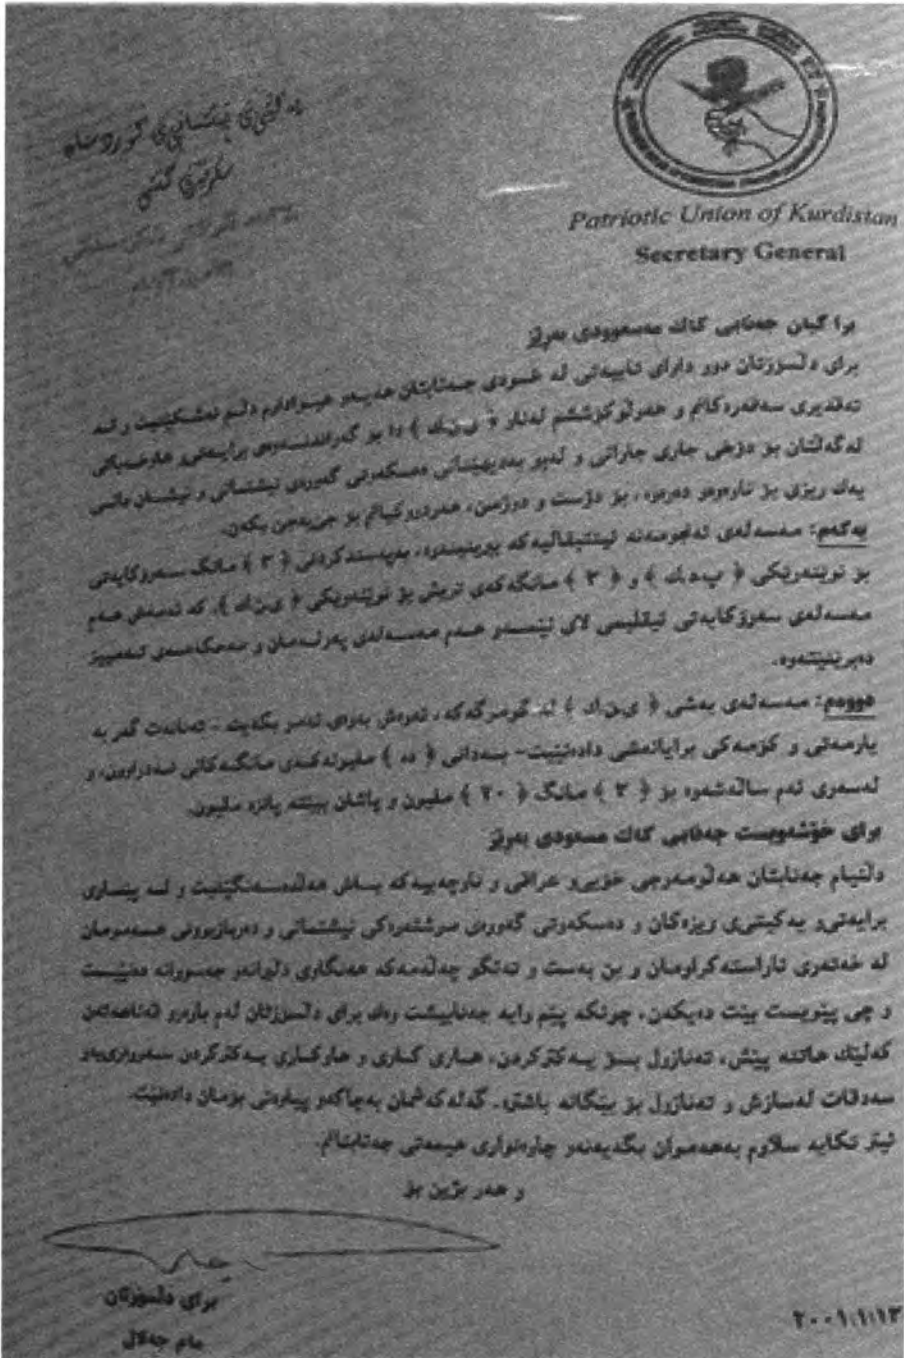 یەکێتیی نیشتمانیی کوردستان
سکرتێری گشتی
Patriotic Union of Kurdistan
Secretary General
برا گیان جەنابی كاك مەسعوودی بەرێز
برای دڵسۆزتان دارای تایبەتی لە خودی جەنابتان هەیەو دڵم نەشکێنێت و لە
تەقدیری سەفەرەکانم و لەناو ( ی.ن.ك ) دا بۆ گەڕاندنەوەی برایەتی
لەگەڵتان بۆ دۆخی جاری جارانی و لەپێو بەدیهێنانی دەسکەوتی گەورەی نیشتمانی و نیشان دانی
یەك ریزی بۆ ناوەوەو دەرەوە، بۆ دۆست و دوژمن، بۆ جێ بەجێ بکەن.
یەکەم: مەسەلەی ئەنجومەنە ئینتیقالیەکە ببڕێنینەوە، بەپەسندکردنی ( ٣ ) مانگ سەرۆکایەتی
بۆ نوێنەرێکی ( پ.د.ك ) و ( ٣ ) مانگەکەی تریش بۆ نوێنەرێکی ( ی.ن.ك )، کە ئەمەش هەم
مەسەلەی سەرۆکایەتی ئیقلیمی لای ئێمەو هەم مەسەلەی پەرلەمان و مەحکەمەی تەمییز
دەبڕێنێتەوە.
دووەم: مەسەلەی بەشی ( ی.ن.ك ) لە گومرگەکە، ئەوەش بەوەی ئەمر بکەیت - تەنانەت گەر بە
یارمەتی و کۆمەکی برایانەشی دادەنێیت - بەدانی ( دە ) ملیۆنەکەی مانگەکانی نەدراون، و
لەسەری ئەم ساڵەشەوە بۆ ( ٣ ) مانگ ( ٢٠ ) ملیۆن و پاشان ببێتە پانزە ملیۆن.
برای خۆشەویست جەنابی كاك مسعودی بەرێز
دڵنیام جەنابتان هەلومەرجی خۆیی و عراقی و ناوچەییەکە باش هەڵدەسەنگێنێت و لە پێناوی
برایەتی و یەکێتیی ریزەکان و دەسکەوتی گەورەی نیشتمانی و دەربازبوونی هەموومان
لە خەتەری ئاراستەکراومان و بن بەست و تەنگو چەڵەمەکە هەنگاوی دلێرانەو جەسورانە دەنێیت
و چی پێویست بێت دەیکەن، چونکە پێم وایە جەنابیشت وەك برای دڵسۆزتان لەم بارەوە
گەلێك هاتنە پێش، تەنازول بۆ یەکترکردن، هاری کاری و هاوکاری یەکترکردن
سەدقات لەسازش و تەنازول بۆ بێگانە باشترە. گەلەکەشمان بەچاکەو پیاوەتی بۆمان دادەنێت.
ئیتر تکایە سلاوم بەهەموان بگەیەنەو چاوەنواری هیممەتی جەنابتانم.
و هەر بژین بۆ
برای دڵسۆزتان
مام جەلال
٢٠٠١.١.١٣